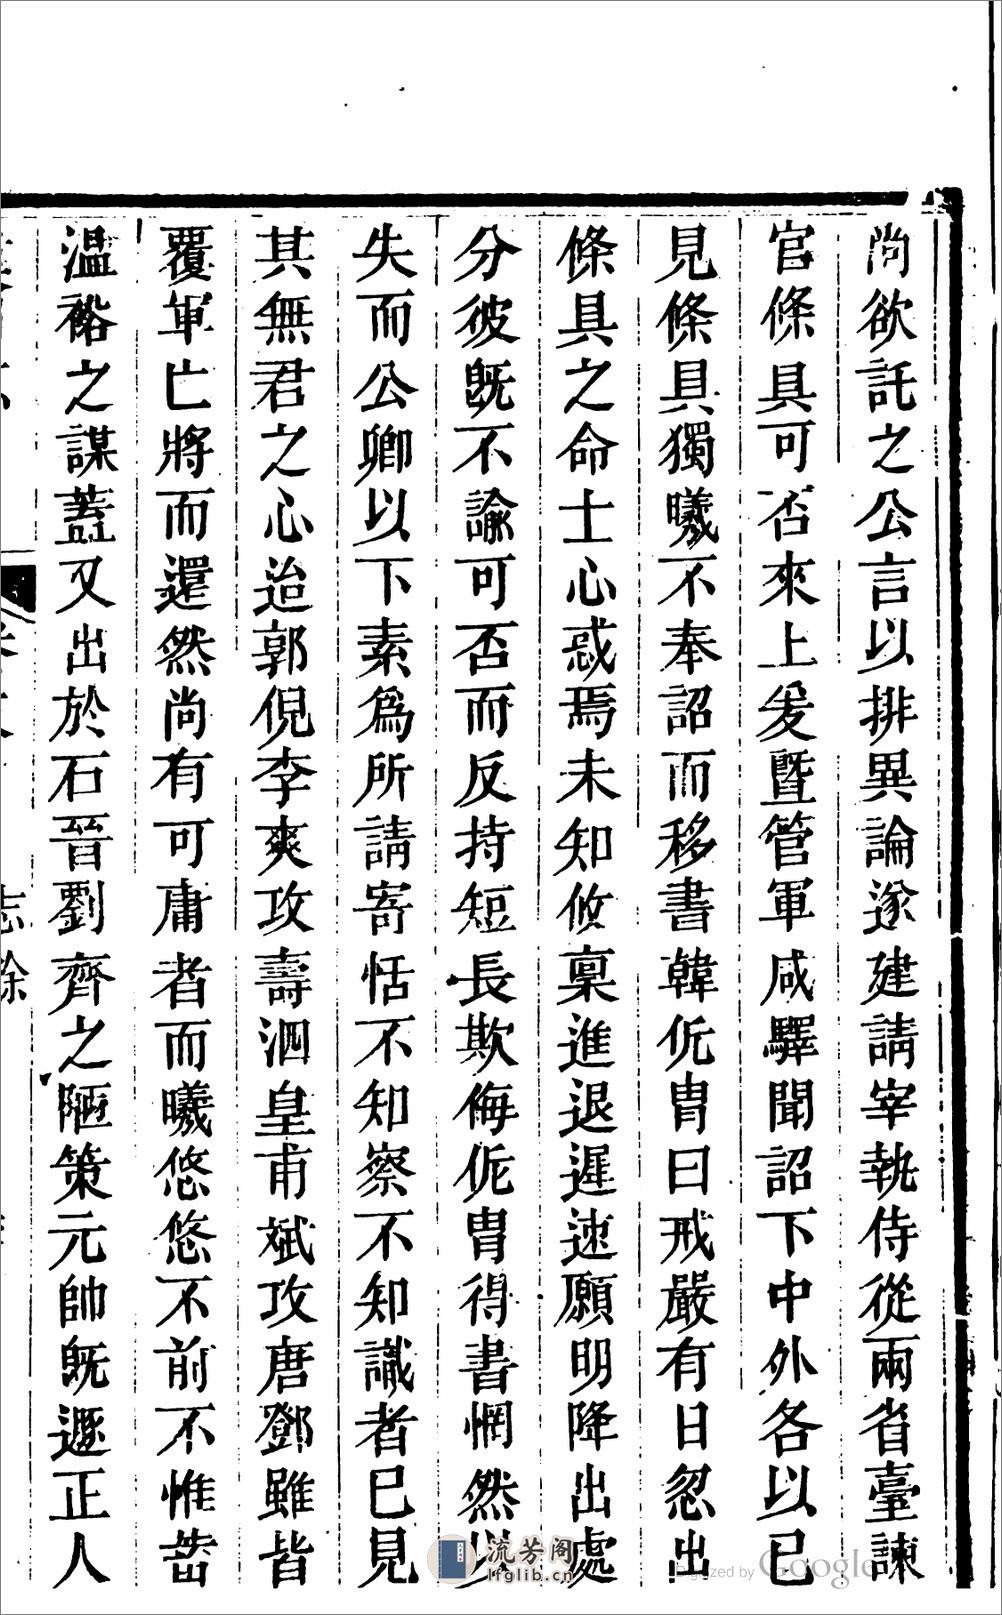 尚欲託之公言以排異論遂建請宰執侍從兩省臺諫
官條具可否來上爰曁管軍咸驛聞詔下中外各以已
見條具獨曦不奉詔而移書韓侂胄曰戒嚴有日忽出
條具之命士心惑焉未知攸稟進退遲速願明降出處
分彼旣不諭可否而反持短長欺侮侂胄得書惘然以
失而公卿以下素爲所請寄恬不知察不知識者巳見
其無君之心迨郭倪李爽攻壽泗皇甫斌攻唐鄧雖皆
覆軍亡將而還然尚有可庸者而曦悠悠不前不惟蓄
溫裕之謀蓋又出於石晉劉齊之陋策元帥旣遯正人
志餘
流芳阁
lfglib.cn
Digitized by Google